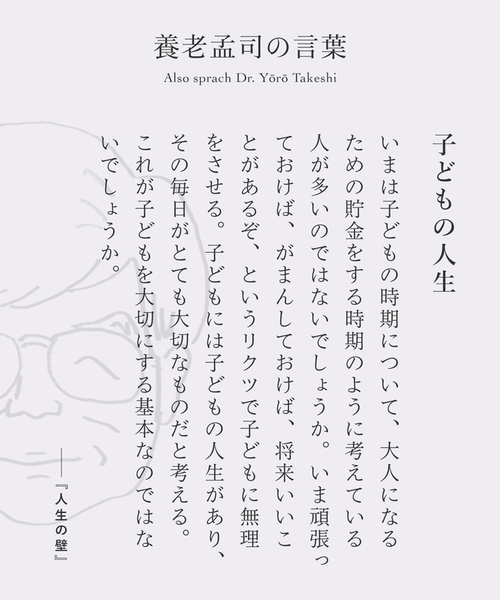 養老孟司の言葉
Also sprach Dr. Yōrō Takeshi
子どもの人生
いまは子どもの時期について、大人になる
ための貯金をする時期のように考えている
人が多いのではないでしょうか。いま頑張っ
ておけば、がまんしておけば、将来いいこ
とがあるぞ、というリクツで子どもに無理
をさせる。子どもには子どもの人生があり、
その毎日がとても大切なものだと考える。
これが子どもを大切にする基本なのではな
いでしょうか。
──『人生の壁』